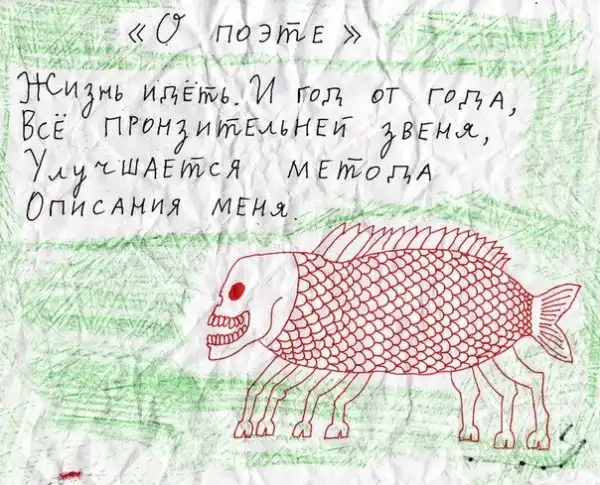 «О поэте»
Жизнь идёть. И год от года,
Всё пронзительней звеня,
Улучшается метода
Описания меня.